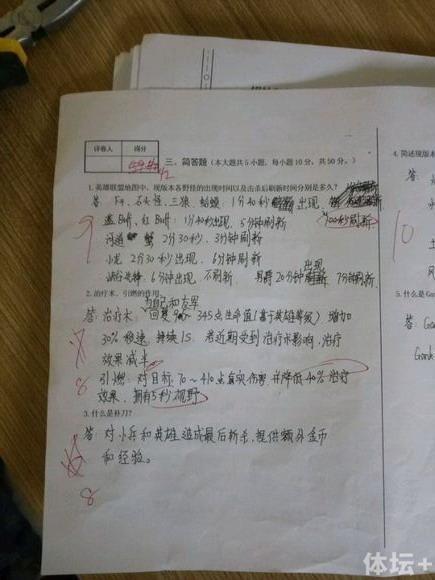 评卷人 得分
三、简答题（本大题共 5 小题，每小题 10 分，共 50 分。）
1.英雄联盟地图中，现版本各野怪的出现时间以及击杀后刷新时间分别是多久？
答 F4、石头怪、三狼 蛤蟆 1分40秒 出现 100秒刷新
蓝Buff、红Buff：1分40秒出现，5分钟刷新
河道 蟹 2分30秒、3分钟刷新
小龙 2分30秒出现，6分钟刷新
峡谷先锋 6分钟出现 不刷新 20分钟 出现 7分钟刷新
2.治疗术、引燃的作用
答：治疗术：为自己和友军 回复 90~345点生命值(基于英雄等级) 增加
30%移速 持续1S 若近期受到治疗术影响，治疗
效果减半
引燃：对目标70~410点真实伤害 并降低40%治疗
效果，拥有5秒视野
3.什么是补刀?
答：对小兵和英雄造成最后斩杀，提供额外金币
和经验。
9
8
8
10
4.简述现版本
答：
5.什么是Ga
答：Gan
Gank
体坛+